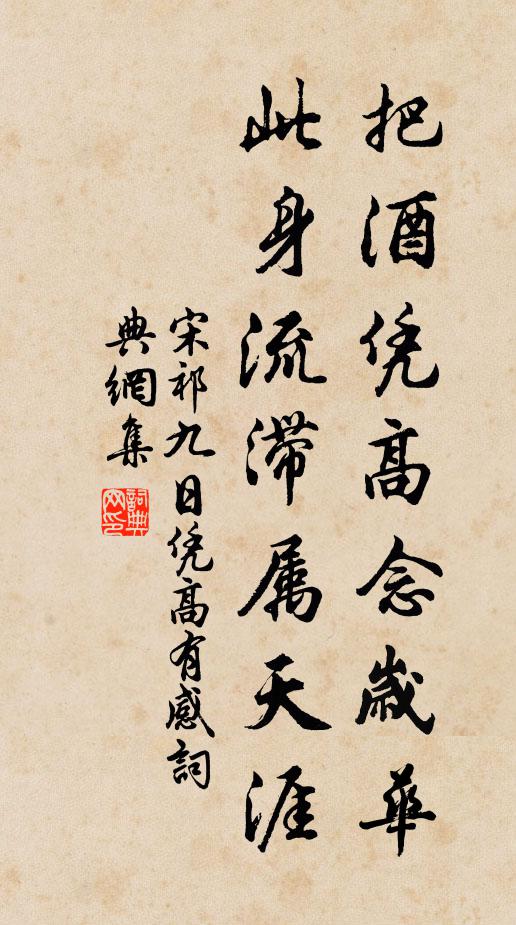 把酒凭高念歲華
此身流滞属天涯
宋祁九日凭高有感詞
典網集
詞典网印